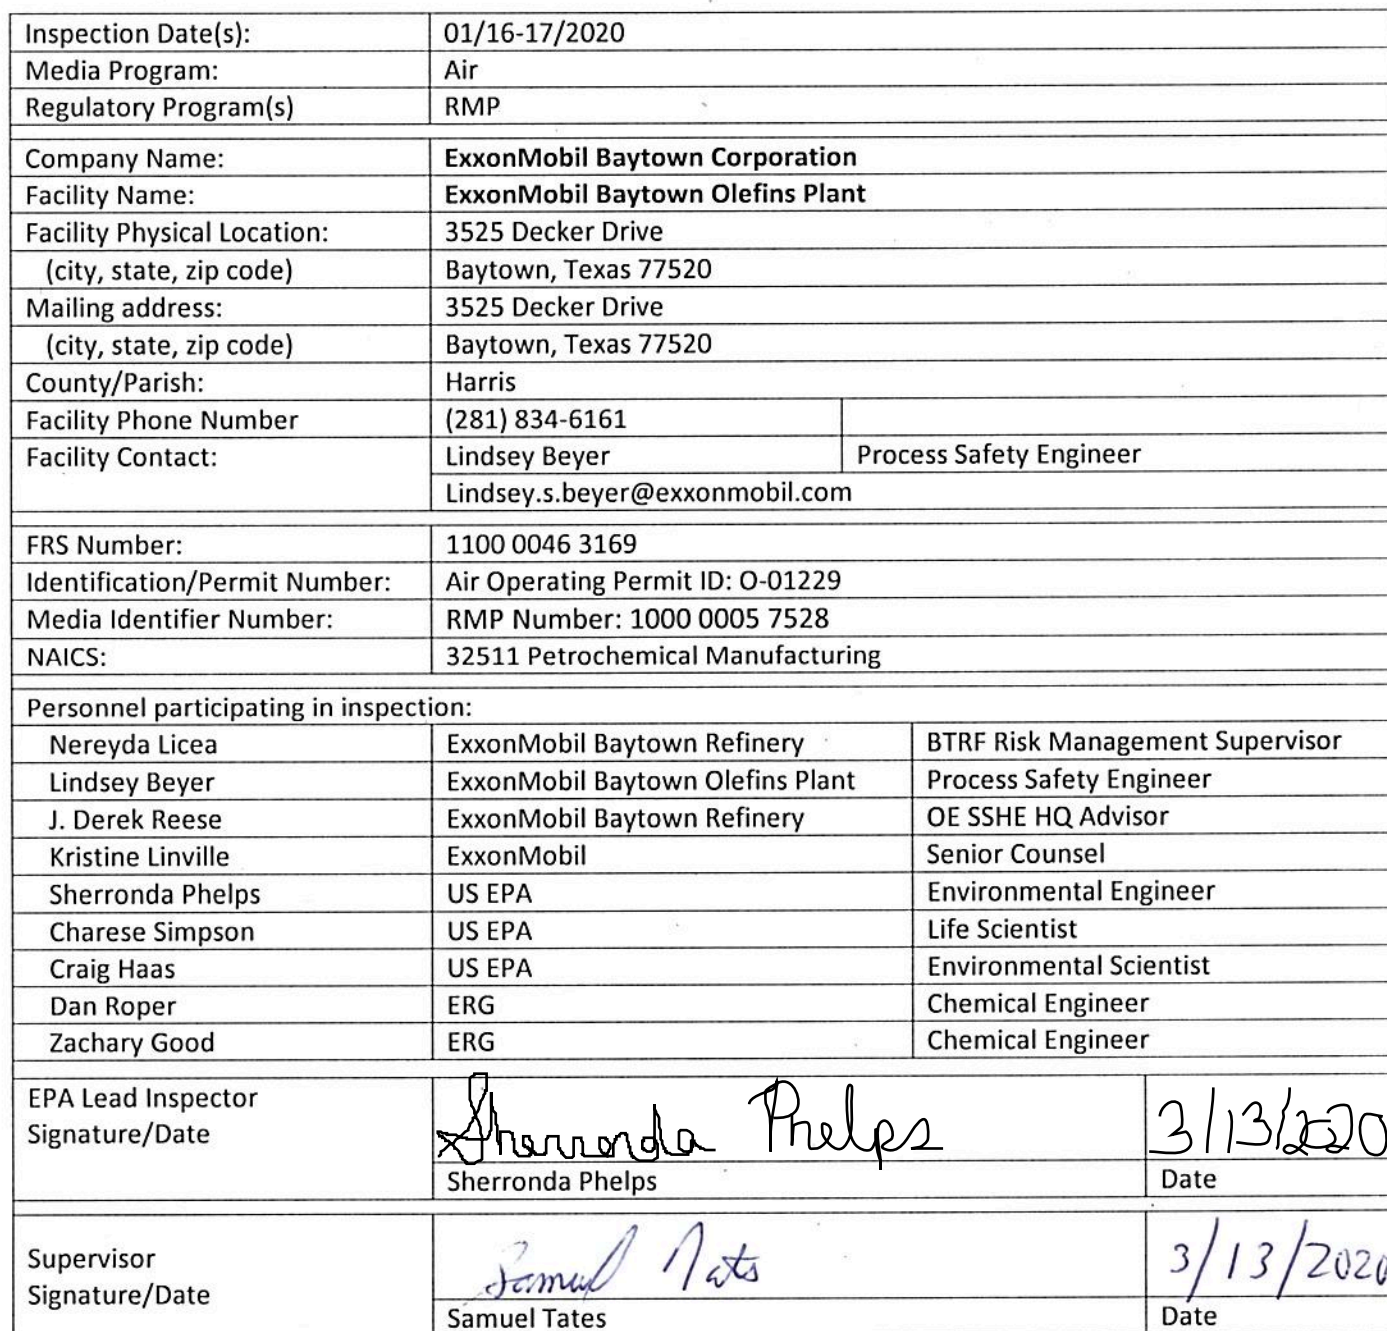 Inspection Date(s): 01/16-17/2020
Media Program: Air
Regulatory Program(s) RMP
Company Name: ExxonMobil Baytown Corporation
Facility Name: ExxonMobil Baytown Olefins Plant
Facility Physical Location: 3525 Decker Drive
(city, state, zip code) Baytown, Texas 77520
Mailing address: 3525 Decker Drive
(city, state, zip code) Baytown, Texas 77520
County/Parish: Harris
Facility Phone Number (281) 834-6161
Facility Contact: Lindsey Beyer Process Safety Engineer
Lindsey.s.beyer@exxonmobil.com
FRS Number: 1100 0046 3169
Identification/Permit Number: Air Operating Permit ID: O-01229
Media Identifier Number: RMP Number: 1000 0005 7528
NAICS: 32511 Petrochemical Manufacturing
Personnel participating in inspection:
Nereyda Licea ExxonMobil Baytown Refinery BTRF Risk Management Supervisor
Lindsey Beyer ExxonMobil Baytown Olefins Plant Process Safety Engineer
J. Derek Reese ExxonMobil Baytown Refinery OE SSHE HQ Advisor
Kristine Linville ExxonMobil Senior Counsel
Sherronda Phelps US EPA Environmental Engineer
Charese Simpson US EPA Life Scientist
Craig Haas US EPA Environmental Scientist
Dan Roper ERG Chemical Engineer
Zachary Good ERG Chemical Engineer
EPA Lead Inspector
Signature/Date Sherronda Phelps 3/13/2020
Sherronda Phelps Date
Supervisor
Signature/Date Samuel Tates 3/13/2020
Samuel Tates Date